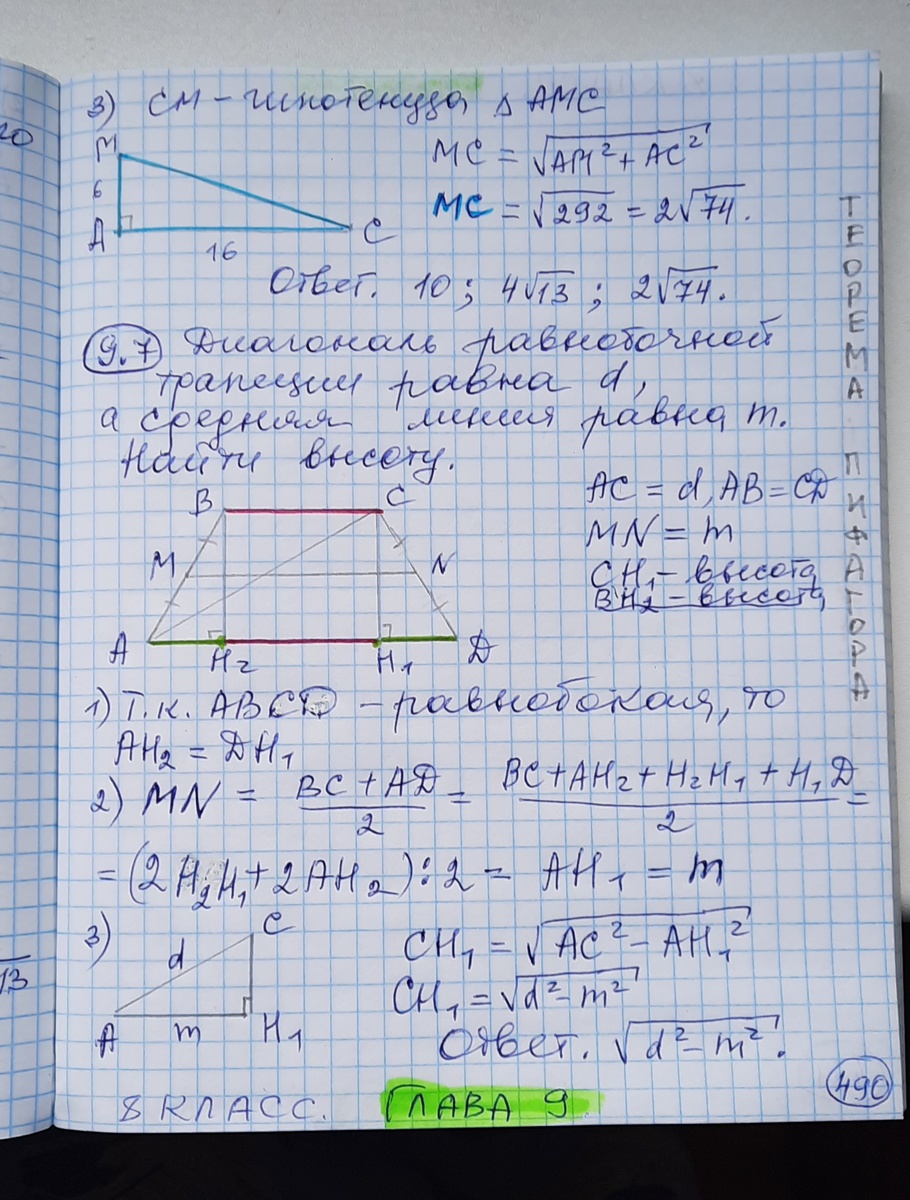 20
3) СМ - гипотенуза △ АМС
M
6
A
16
C
MC = √(AM² + AC²)
MC = √292 = 2√74.
Ответ. 10; 4√13; 2√74.
9.7 Диагональ равнобочной
трапеции равна d,
а средняя линия равна m.
Найти высоту.
B C
M N
A H₂ H₁ D
AC = d, AB = CD
MN = m
CH₁ - высота
BH₂ - высота
1) Т.к. ABCD - равнобокая, то
AH₂ = DH₁
2) MN = (BC + AD)/2 = (BC + AH₂ + H₂H₁ + H₁D)/2 =
= (2H₂H₁ + 2AH₂) : 2 = AH₁ = m
3)
C
d
A m H₁
CH₁ = √(AC² - AH₁²)
CH₁ = √(d² - m²)
Ответ. √(d² - m²).
13
8 КЛАСС. ГЛАВА 9.
490
ТЕОРЕМА ПИФАГОРА